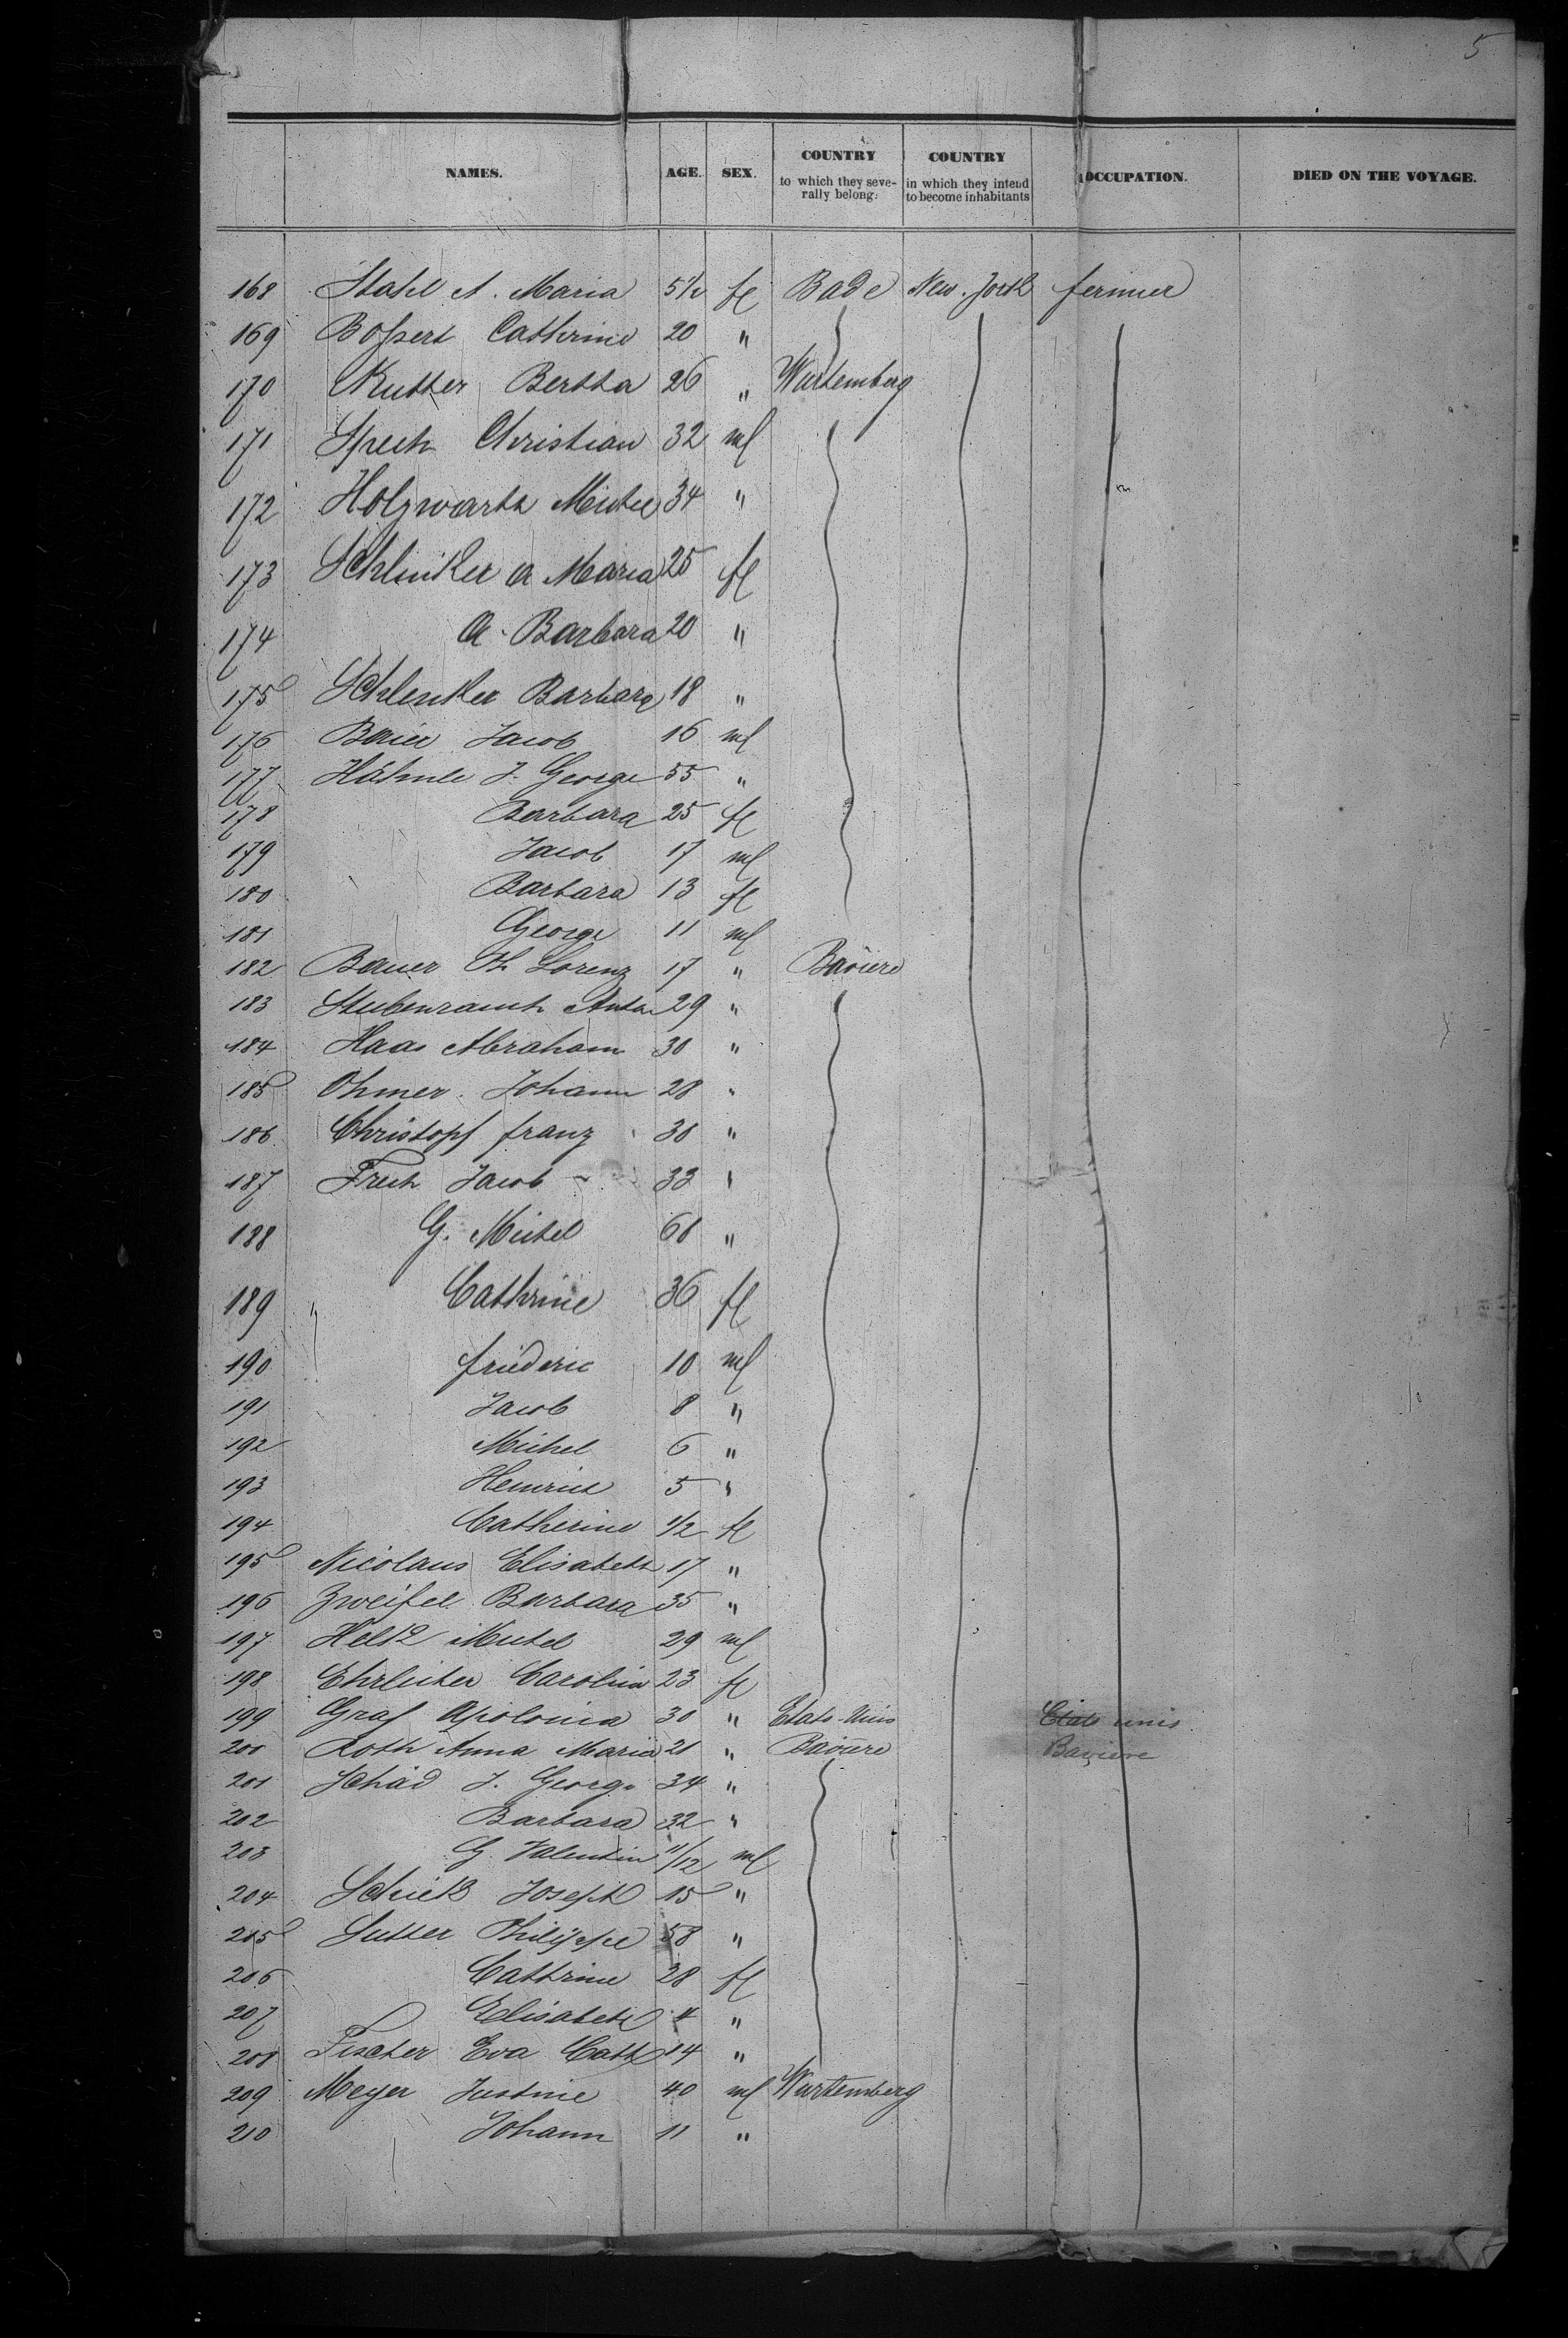 5
NAMES. AGE. SEX. COUNTRY to which they severally belong: COUNTRY in which they intend to become inhabitants OCCUPATION. DIED ON THE VOYAGE.
168 Stahl A. Maria 5 1/2 fl Bade New. York fermier
169 Boßert Cathrine 20 "
170 Kutter Bertha 26 " Wurtemberg
171 Spech Christian 32 ml
172 Holzwarth Michel 34 "
173 Schlenker A Maria 25 fl
174 A. Barbara 20 "
175 Schlenker Barbara 18 "
176 Baier Jacob 16 ml
177 Hähnle J. George 55 "
178 Barbara 25 fl
179 Jacob 17 ml
180 Barbara 13 fl
181 George 11 ml
182 Bauer Ph Lorenz 17 " Baviere
183 Stubenrauch Anton 29 "
184 Haas Abraham 30 "
185 Ohmer. Johann 28 "
186 Christopf franz 30 "
187 Frech Jacob 33 "
188 G. Michel 60 "
189 " Cathrine 36 fl
190 friederic 10 ml
191 Jacob 8 "
192 Michel 6 "
193 Heinrich 5 "
194 Catherine 1/2 fl
195 Nicolaus Elisabeth 17 "
196 Zweifel Barbara 35 "
197 Michel 29 ml
198 Ehrlicher Carolina 23 fl
199 Graf Apolonia 30 " Etats-Unis Etats unis
200 Roth Anna Maria 21 " Baviere Baviere
201 Schäd J. George 34 "
202 Barbara 32 "
203 G. Valentin 11/12 ml
204 Joseph 15 "
205 Sutter Philippe 58 "
206 Cathrine 28 fl
207 Elisabeth 4 "
208 Fischer Eva Cath 14 "
209 Meyer Justine 40 ml Wurtemberg
210 Johann 11 "